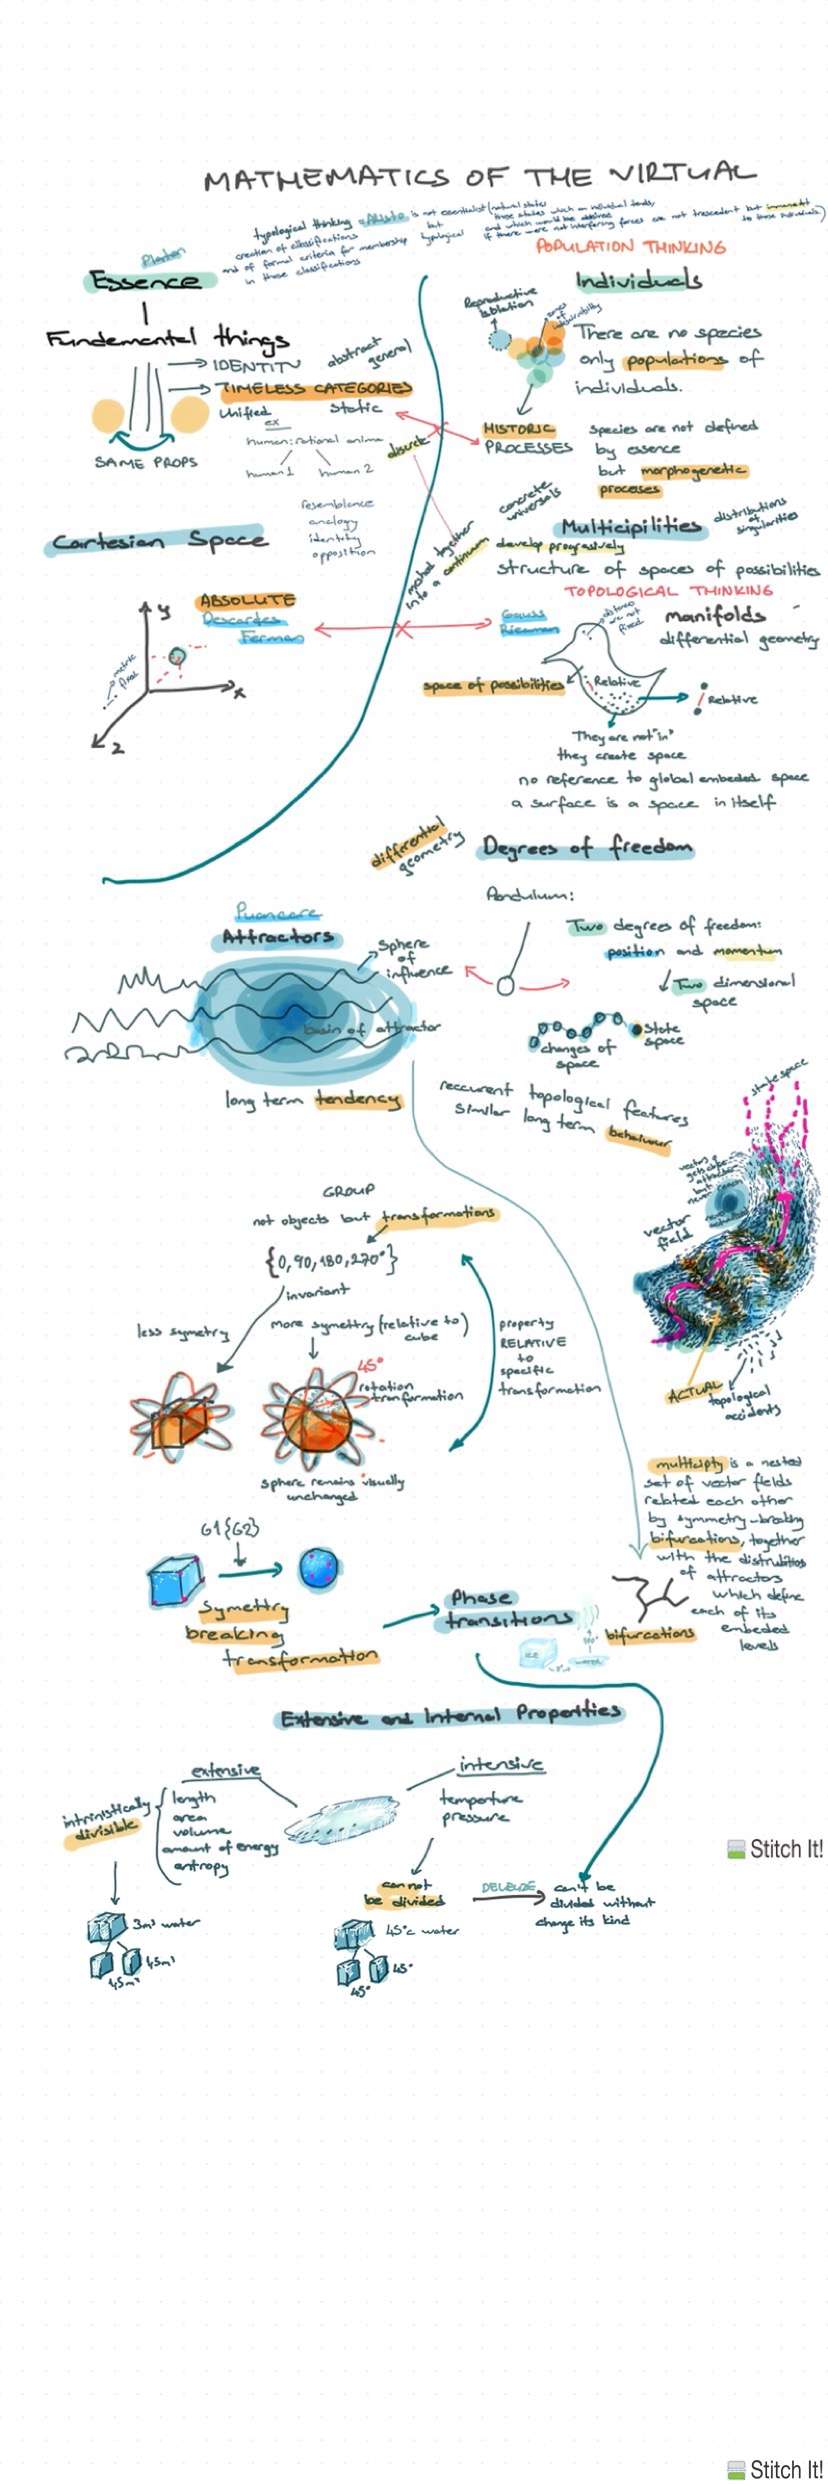 MATHEMATICS OF THE VIRTUAL
typological thinking
creation of classifications
and of formal criteria for membership
in those classifications
Aristo is not essentialist (natural states
but
typological
those states which an individual tends,
and which would be obtained
if there were not interfering forces are not trescedent but immanent
to those individuals)
Platon
Essence
Fundemental things
IDENTITY
abstract
general
TIMELESS CATEGORIES
Unified
static
SAME PROPS
ex
human: rational anima
human 1
human 2
resemblance
analogy
identity
opposition
discrete
POPULATION THINKING
Individuals
Reproductive
isolation
There are no species
only populations of
individuals.
HISTORIC
PROCESSES
species are not defined
by essence
but morphogenetic
processes
Cartesian Space
ABSOLUTE
Descardes
Fermen
y
x
z
metric
fixed
concrete
universals
Multicipilities
distributions
of
singularities
meshed together
into a continuum
develop progresively
structure of spaces of possibilities
TOPOLOGICAL THINKING
Gauss
Rieeman
distances
are not
fixed
manifolds
differential geometry
space of possibilities
Relative
Relative
They are not "in"
they create space
no reference to global embeded space
a surface is a space in itself
differential
geometry
Degrees of freedom
Pandulum:
Two degrees of freedom:
position and momentum
Two dimensional
space
State
space
changes of
space
Puancare
Attractors
Sphere
of
influence
basin of attractor
long term tendency
reccurent topological features
similar long term behaviour
state space
vector
field
ACTUAL
topological
accidents
GROUP
not objects but transformations
{0, 90, 180, 270°}
invariant
less symetry
more symettry (relative to)
cube
45°
rotation
tranformation
sphere remains visually
unchanged
property
RELATIVE
to
specific
transformation
multiciplty is a nested
set of vector fields
related each other
by symmetry-breaking
bifurcations, together
with the distrubitios
of attractors
which define
each of its
embeded
levels
G1{G2}
Symettry
breaking
transformation
Phase
transitions
ICE
water
bifurcations
Extensive and Internal Properties
extensive
intensive
intrinistically
divisible
length
area
volume
amount of energy
antropy
temperture
pressure
can not
be divided
DELEUZE
can't be
divided without
change its kind
3m³ water
1,5m³
1,5m³
45°c water
45°
45°
Stitch It!
Stitch It!